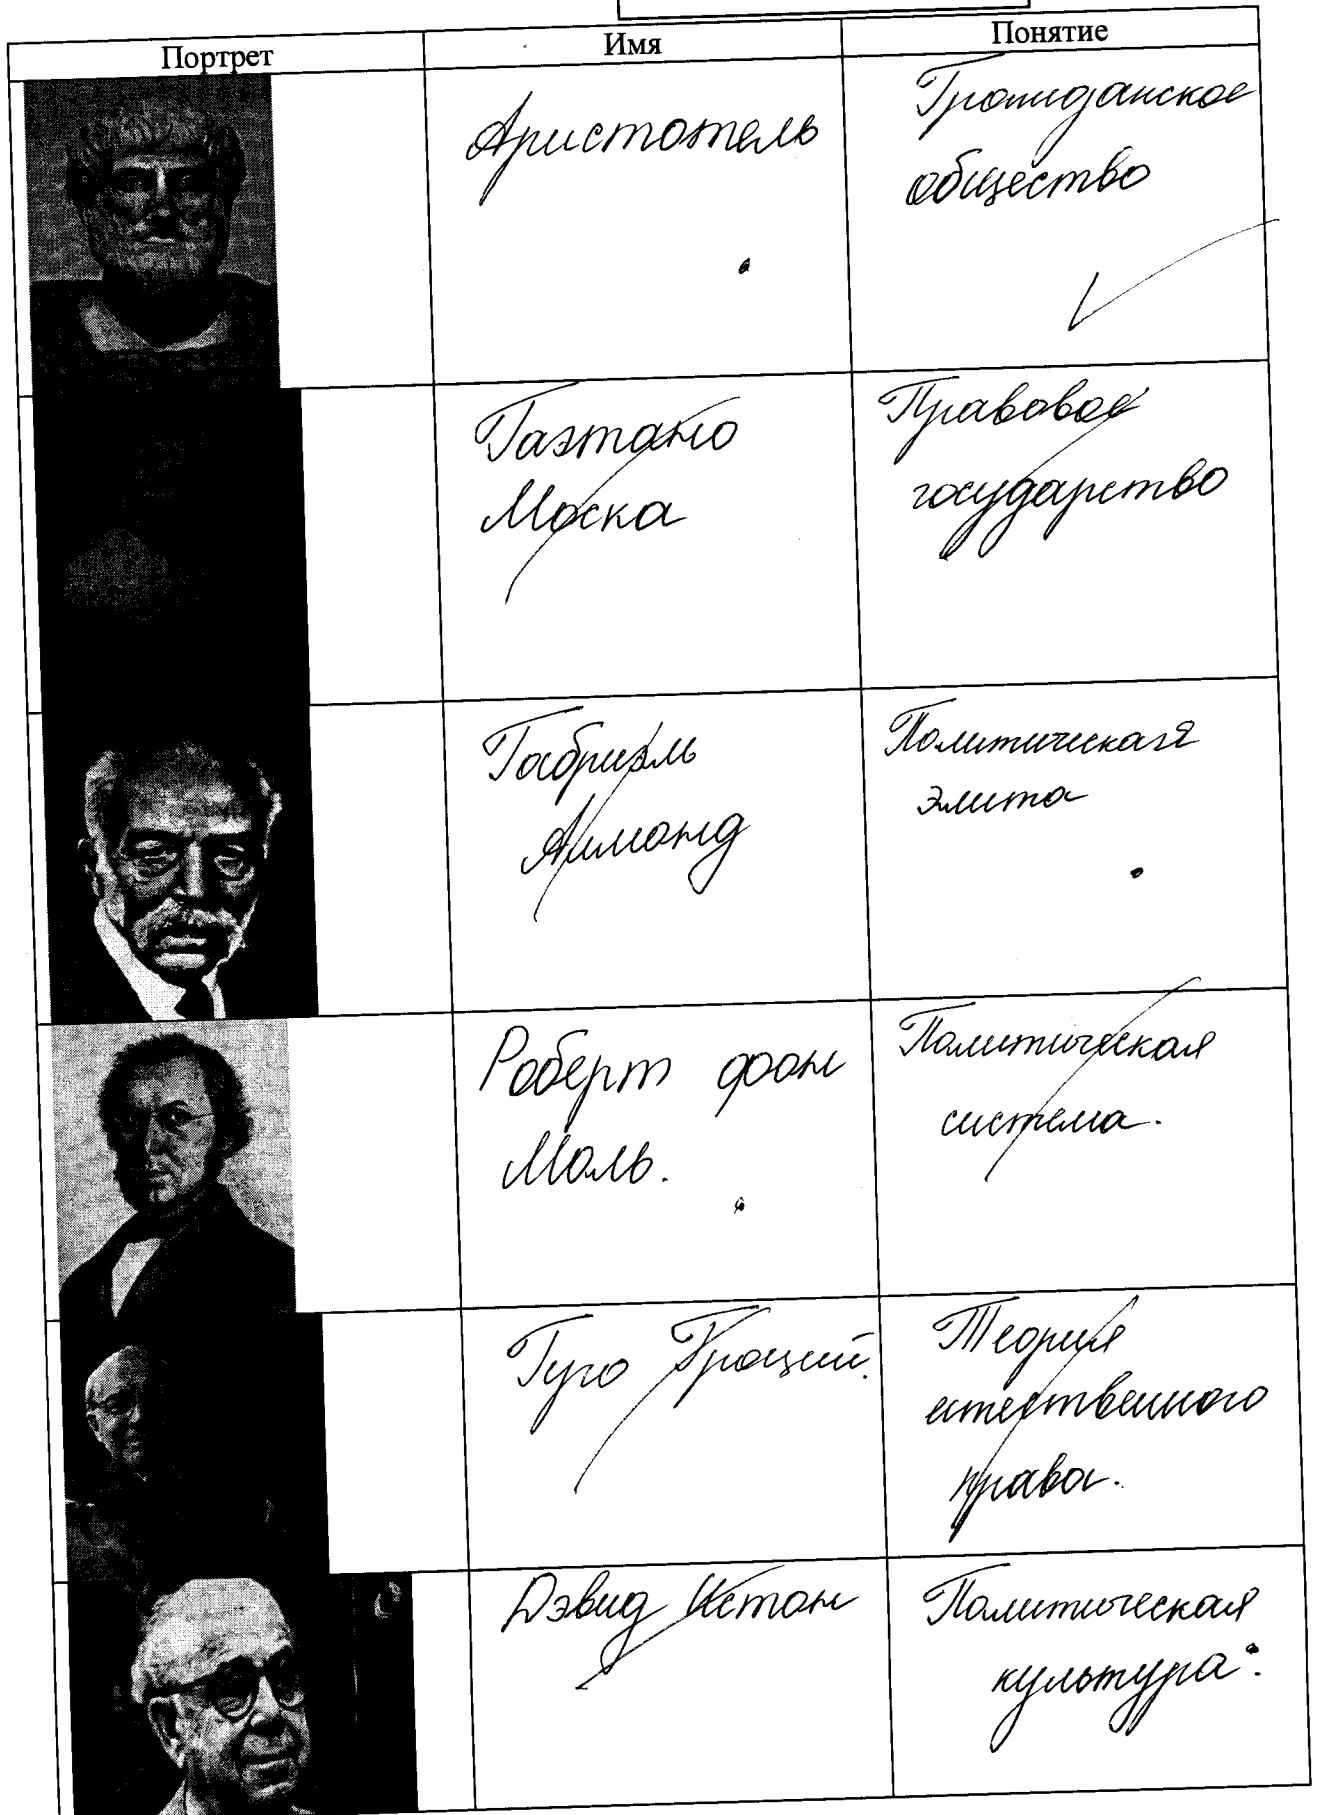 Портрет Имя Понятие
Аристотель
Гражданское
общество
Гаэтано
Моска
Правовое
государство
Габриэль
Алмонд
Политическая
элита
Роберт фон
Моль.
Политическая
система.
Гуго Гроций.
Теория
естественного
права.
Дэвид Истон
Политическая
культура.